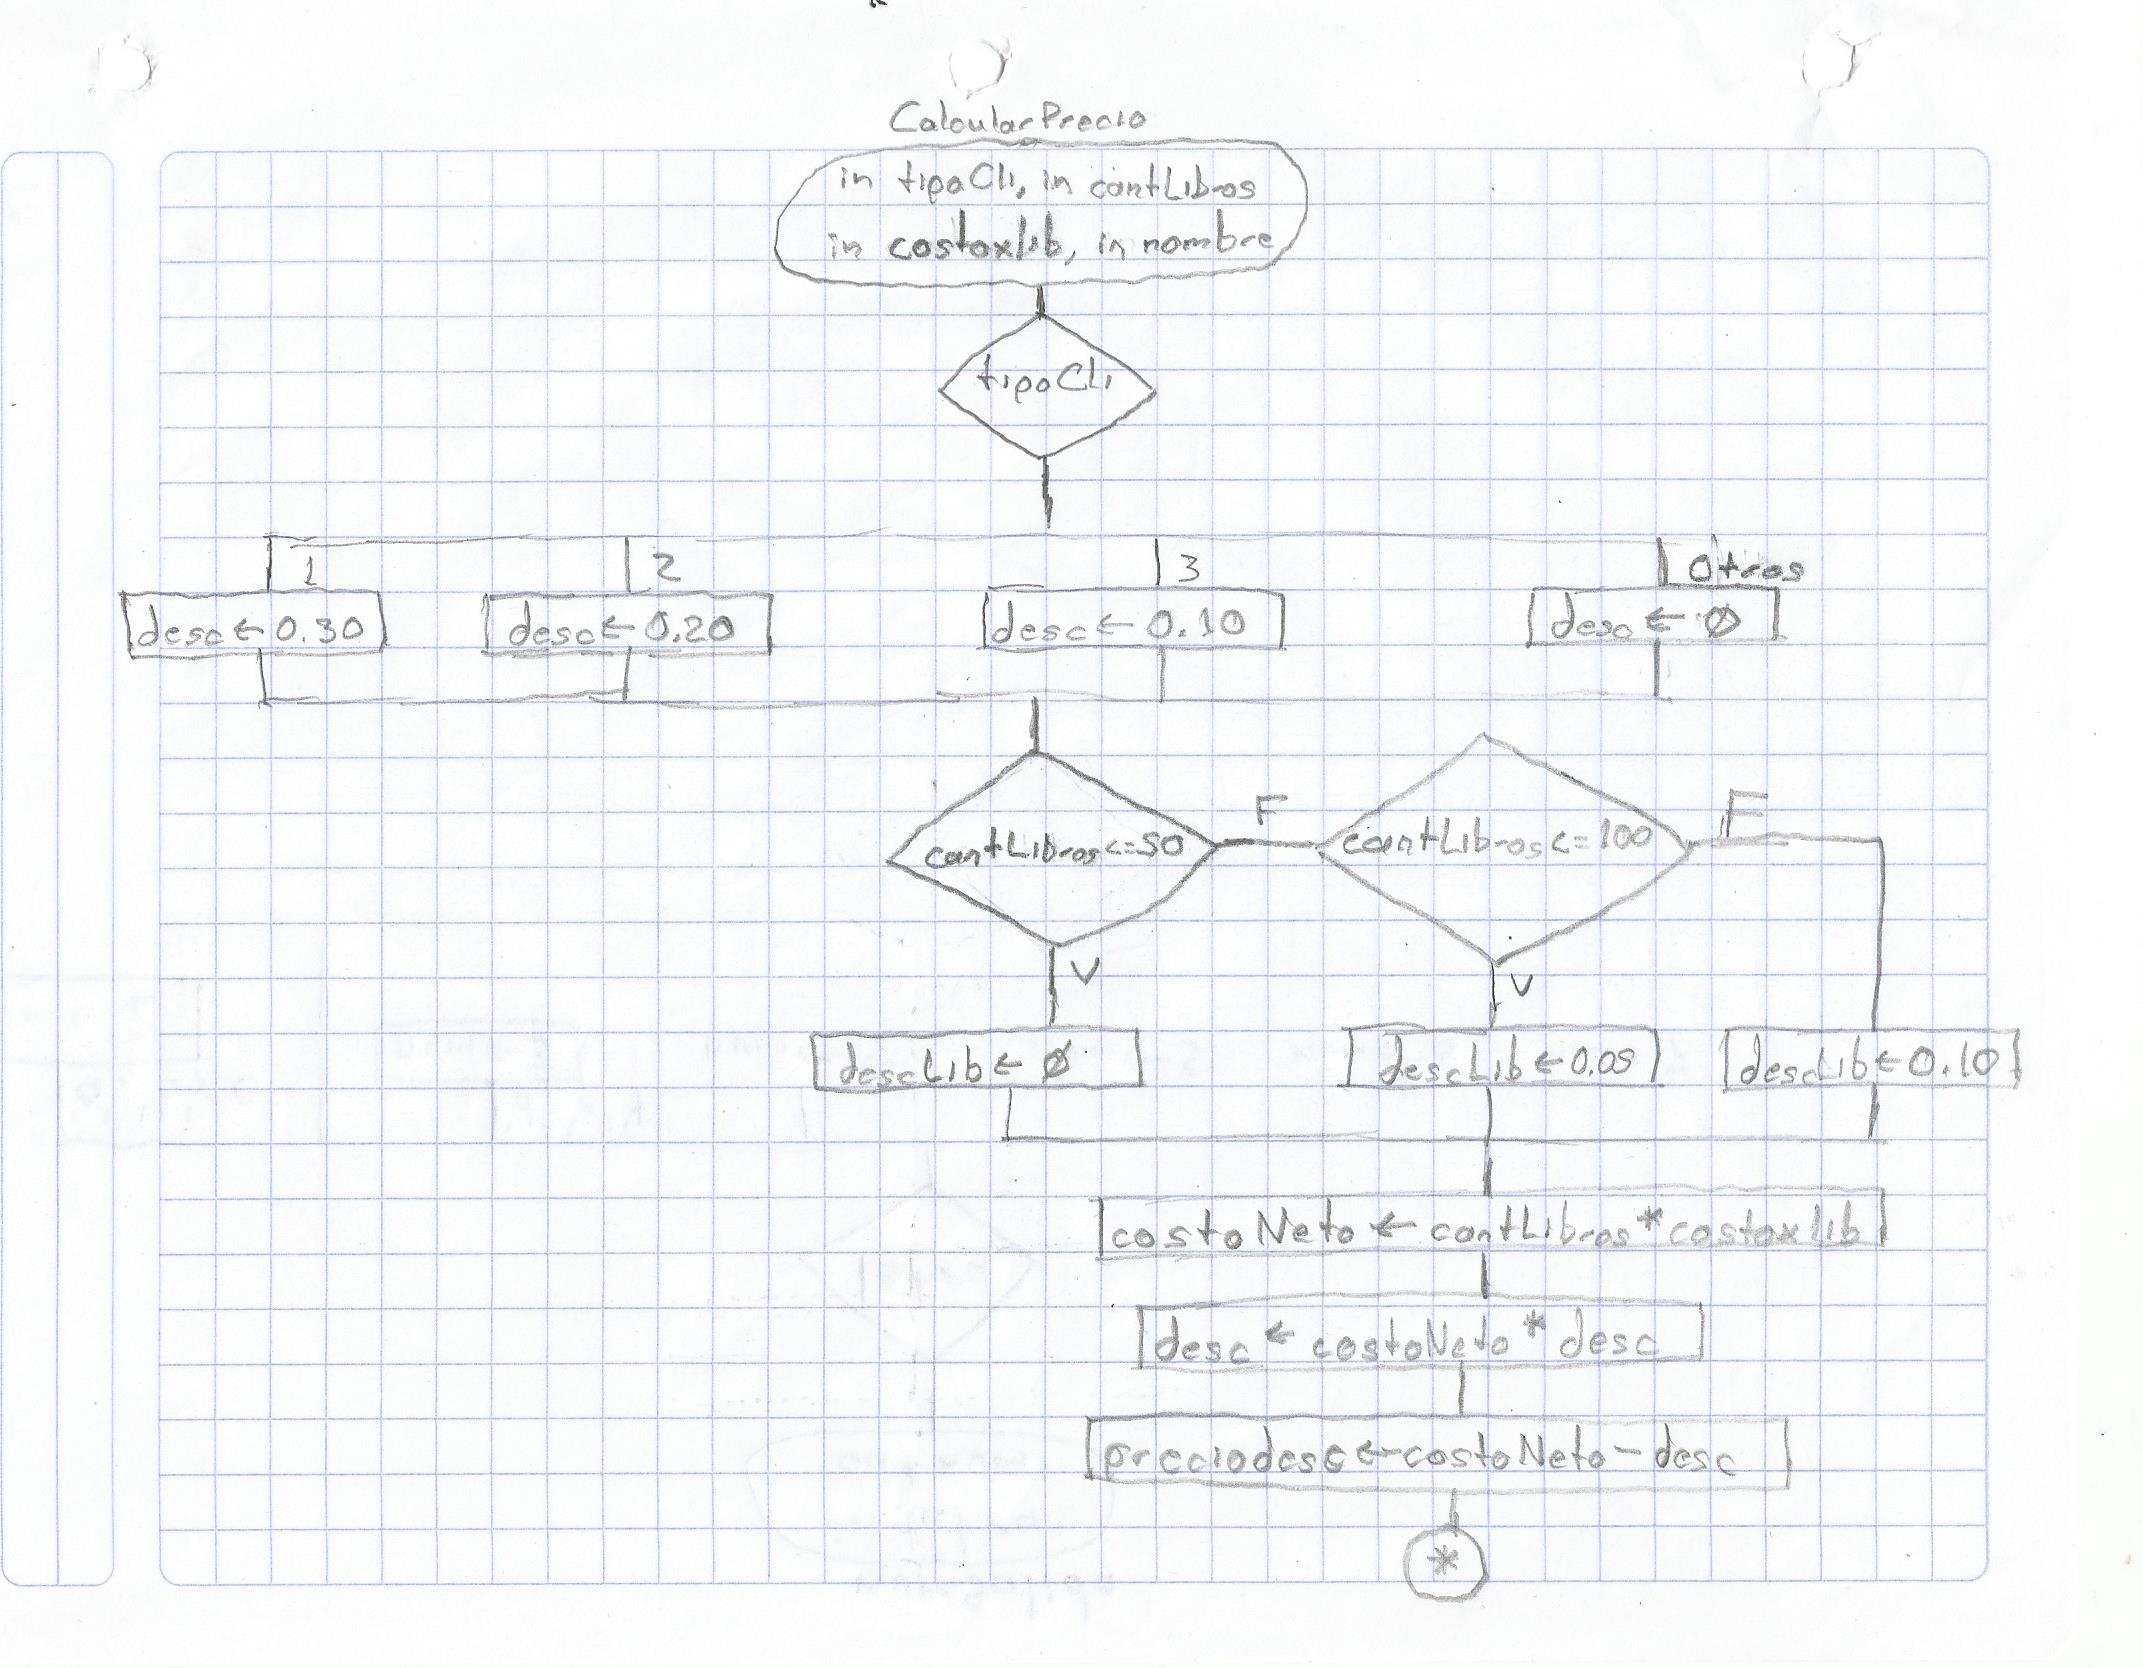 CalcularPrecio
in tipoCli, in cantLibros
in costoxlib, in nombre
tipoCli
1
2
3
Otros
desc ← 0.30
desc ← 0.20
desc ← 0.10
desc ← Ø
cantLibros<=50
F
cantLibros<=100
F
V
V
descLib ← Ø
descLib ← 0.05
descLib ← 0.10
costoNeto ← cantLibros*costoxlib
desc ← costoNeto * desc
preciodesc ← costoNeto - desc
*